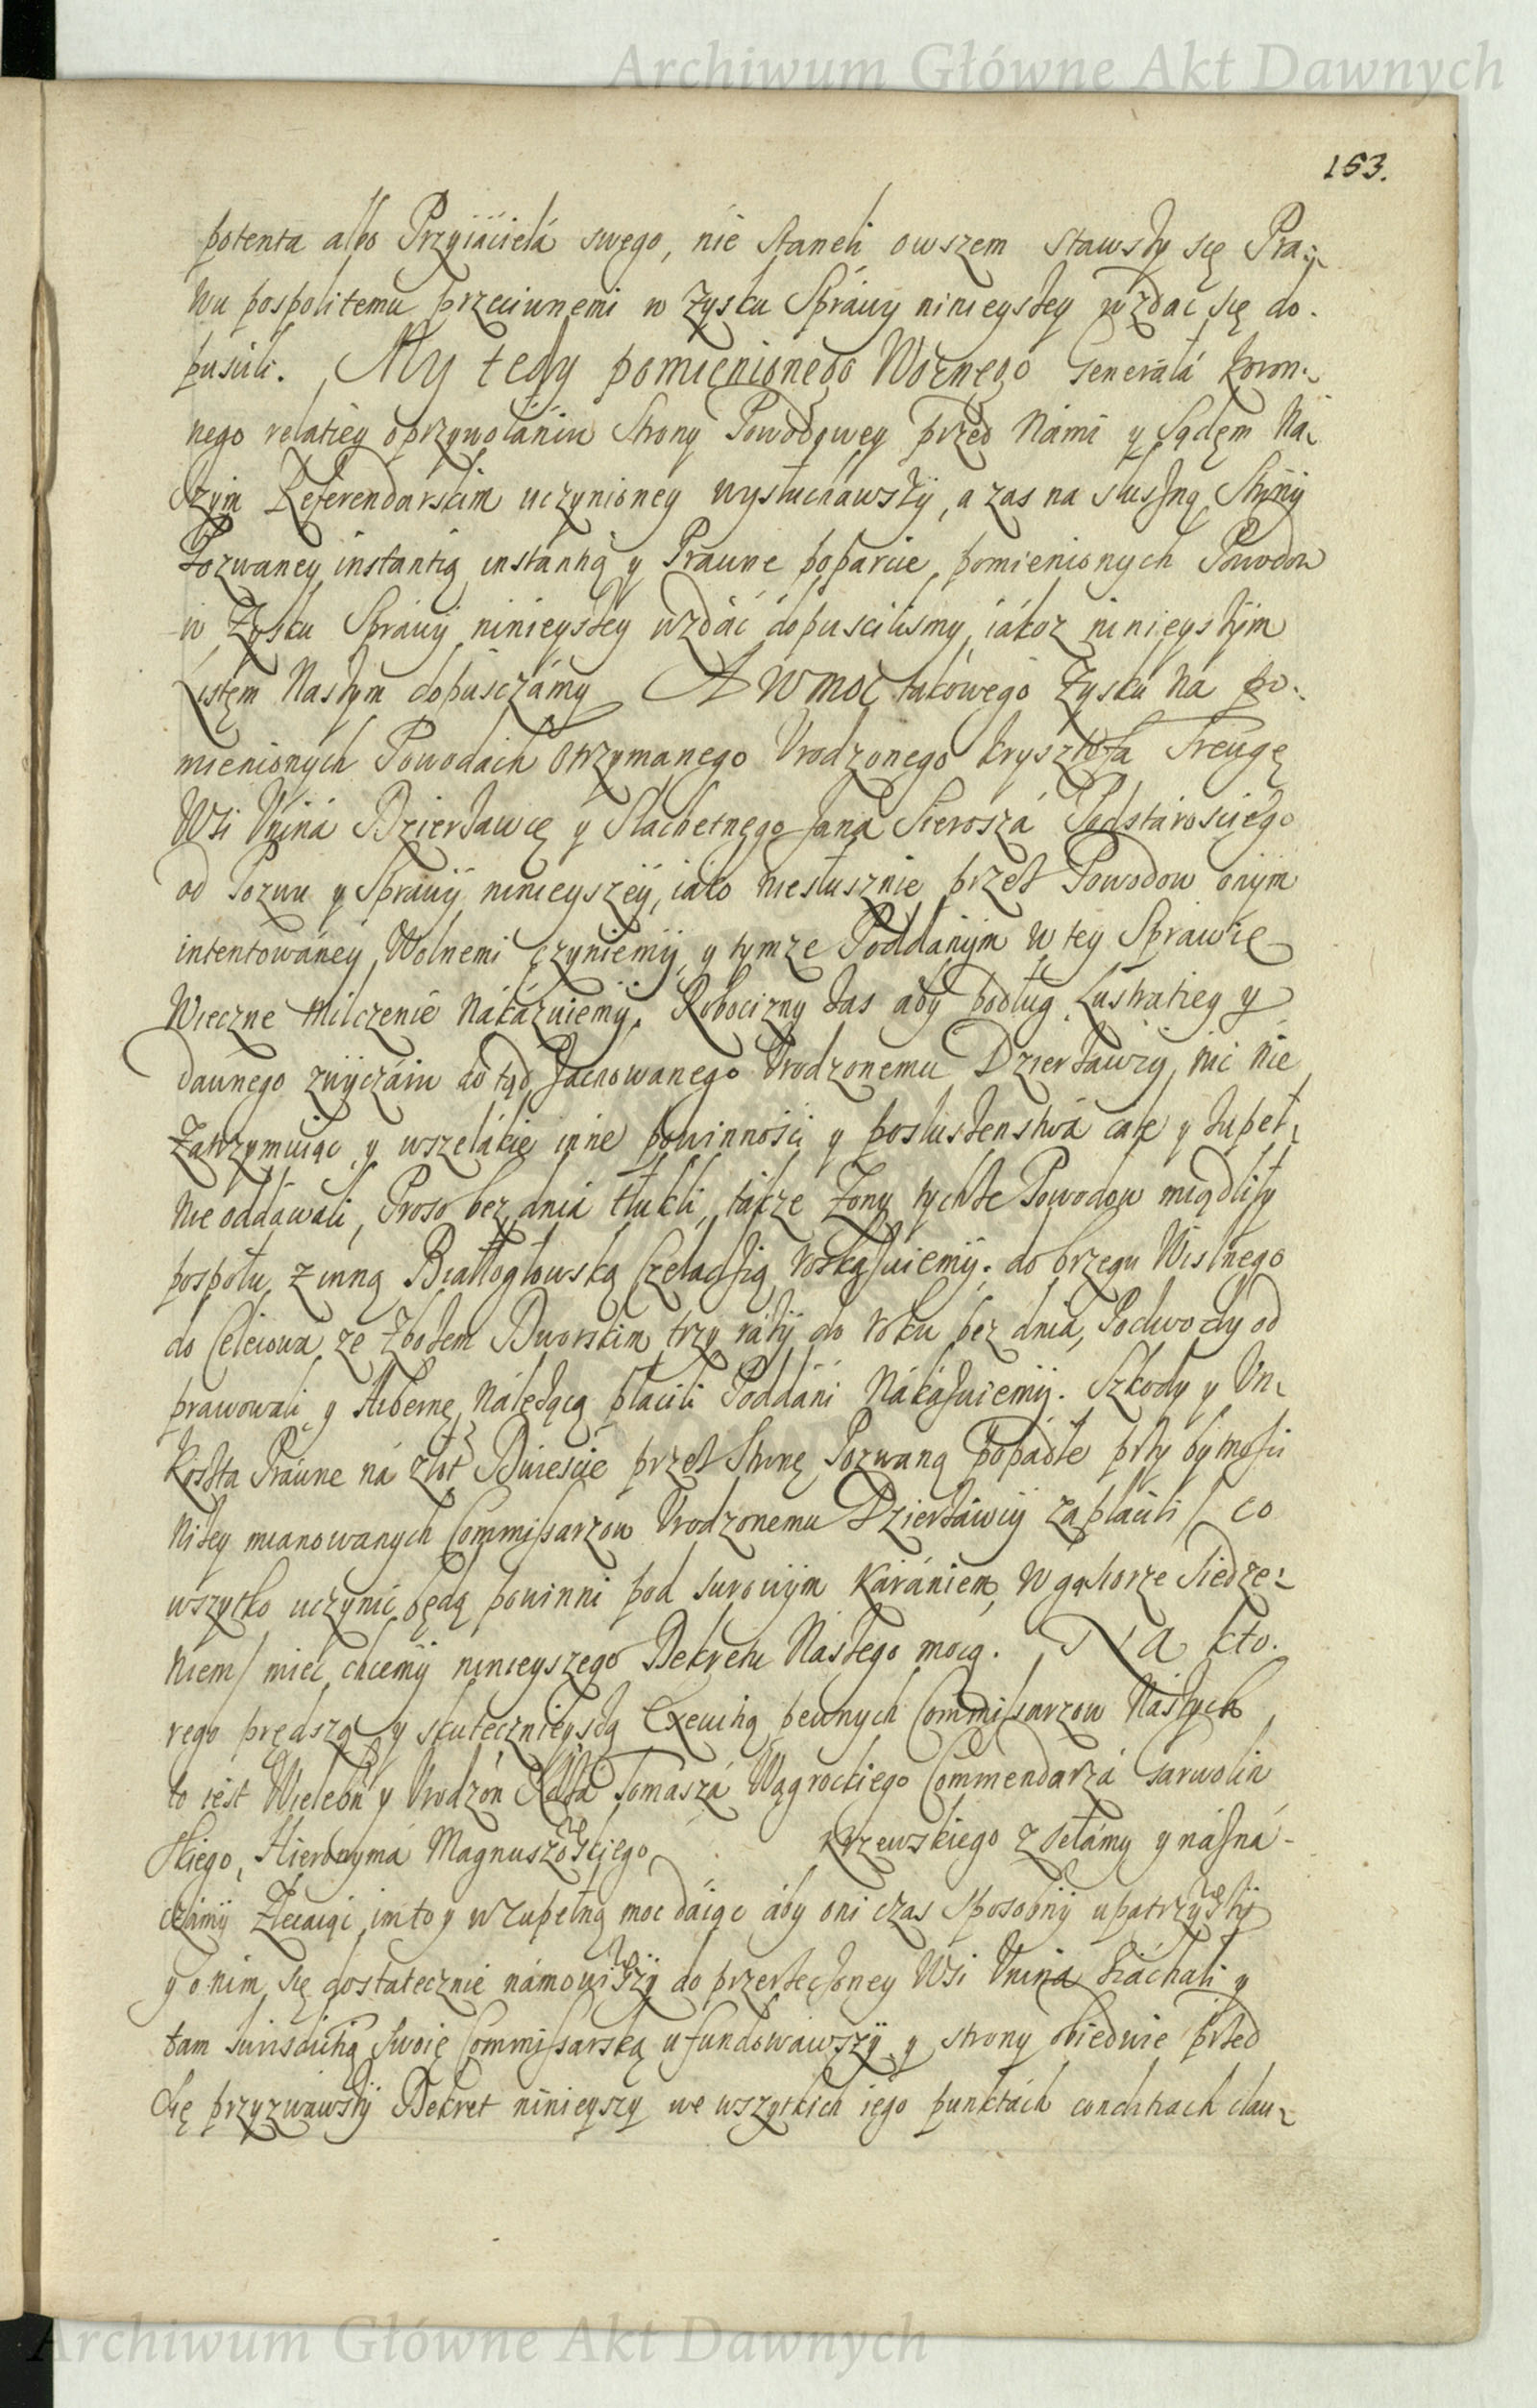 Archiwum Główne Akt Dawnych
153.
potenta albo Przyiáćielá swego, nie staneli owszem stawszy się Pra:
wu pospolitemu przeciwnemi w Zysku Spráwy ninieyszey wzdać się do.
puśćili. My tedy pomienionego Woznego Generałá Koron:
nego relatiey o przywołániu Strony Powodowey przed Námi y Sądęm Ná
szym Referendarskim uczynioney wysłuchawszÿ, a zas na słuszną Strony
Pozwaney instantią instantią y Prawne poparcie, pomienionych Powodow
w Zysku Spráwÿ ninieyszey wzdáć dopuscilismy, iákoż ninieyszym
Listęm Naszym dopusczámy A w moc takowego Zysku ná po:
mienionych Powodách otrzymanego Vrodzonego Krysztofa Freugę
Wsi Vniná Dzierżawcę y Slachetnęgo Janá Sieroszá Podstárosciégo
od Pozwu y Spráwÿ ninieyszeÿ, iáko niesłusznie przez Powodow onÿm
intentowáney, Wolnemi czyniemÿ, y tymze Poddánÿm w tey Sprawie
Wieczne Milczenie Nákázuiemÿ. Robocizny zas aby podług Lustratiey y
dawnego zwÿczáiu do tąd zachowanego Vrodzonemu Dzierżawcy, nic nie
Zatrzymuiąc y wszelákie inne powinnosci y posłuszenstwá cáłe y zupeł
nie oddáwali, Proso bez dniá tłukli, tákze Zony tychże Powodow międliły
pospołu z inną Białłogłowską Czeladzią roskázuiemÿ. do brzegu Wislnego
do Celeiowa ze Zbożem Dworskim trzy rázÿ do roku bez dniá, Podwody od
prawowali y Hibernę Náleżącą płacili Poddáni Nákázuiemÿ. Szkody y Vn
koszta Práwne ná złot Dwiescie przez Stronę Pozwaną popádłe przy bÿtnosci
Niżey mianowanych Commissarzow Vrodzonemu Dzierżáwcÿ zapłácili / co
wszytko uczynić będą powinni pod surowÿm Karániem, w gąsiorze siedze:
niem / mieć chcemÿ ninieyszego Dekretu Naszego mocą. Na kto.
rego prędszą y skutecznieyszą Exeuctią pewnych Commissarzow Nászych
to iest Wielebn y Vrodzon Xdza Tomaszá Wągrockiego Commendarzá Garwolin
skiego, Hieronymá Magnuszowskiego Krzewskiego zsełámy y názná-
czámÿ Zlecaiąc im to y w zupełną moc dáiąc áby oni czas sposobnÿ upatrzywszÿ
y o nim się dostatecznie námowiwszÿ do przerzeczoney Wsi Vnina ziáchali y
tam Iurisdictią swoię Commissarską ufundowáwszÿ y strony obiedwie przed
Się przyzwáwszÿ Dekret ninieyszy we wszytkich iego punktách conditiach clau
Archiwum Główne Akt Dawnych